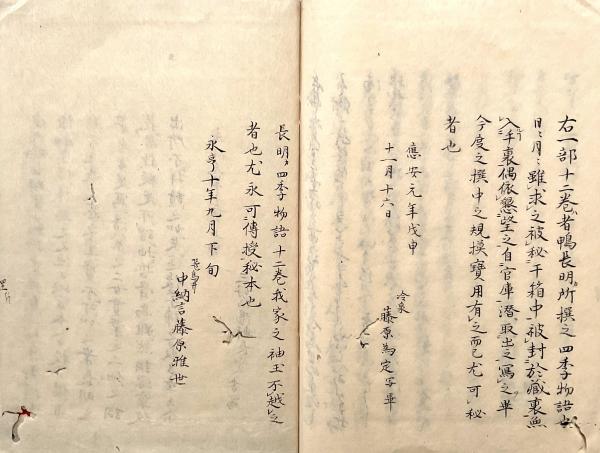 右一部十二巻者鴨長明所撰之四季物語也
日々月々雖求之被秘于箱中被封於蔵裏魚
入手裏偶依懇望之自官庫潜取出之写之畢
今度之撰中之規摸寶用有之而已尤可秘
者也
應安元年戊申
十一月十六日
冷泉
藤原為定写畢
長明四季物語十二巻我家之袖玉不越之
者也尤永可傳授秘本也
永享十年九月下旬
飛鳥井
中納言藤原雅世